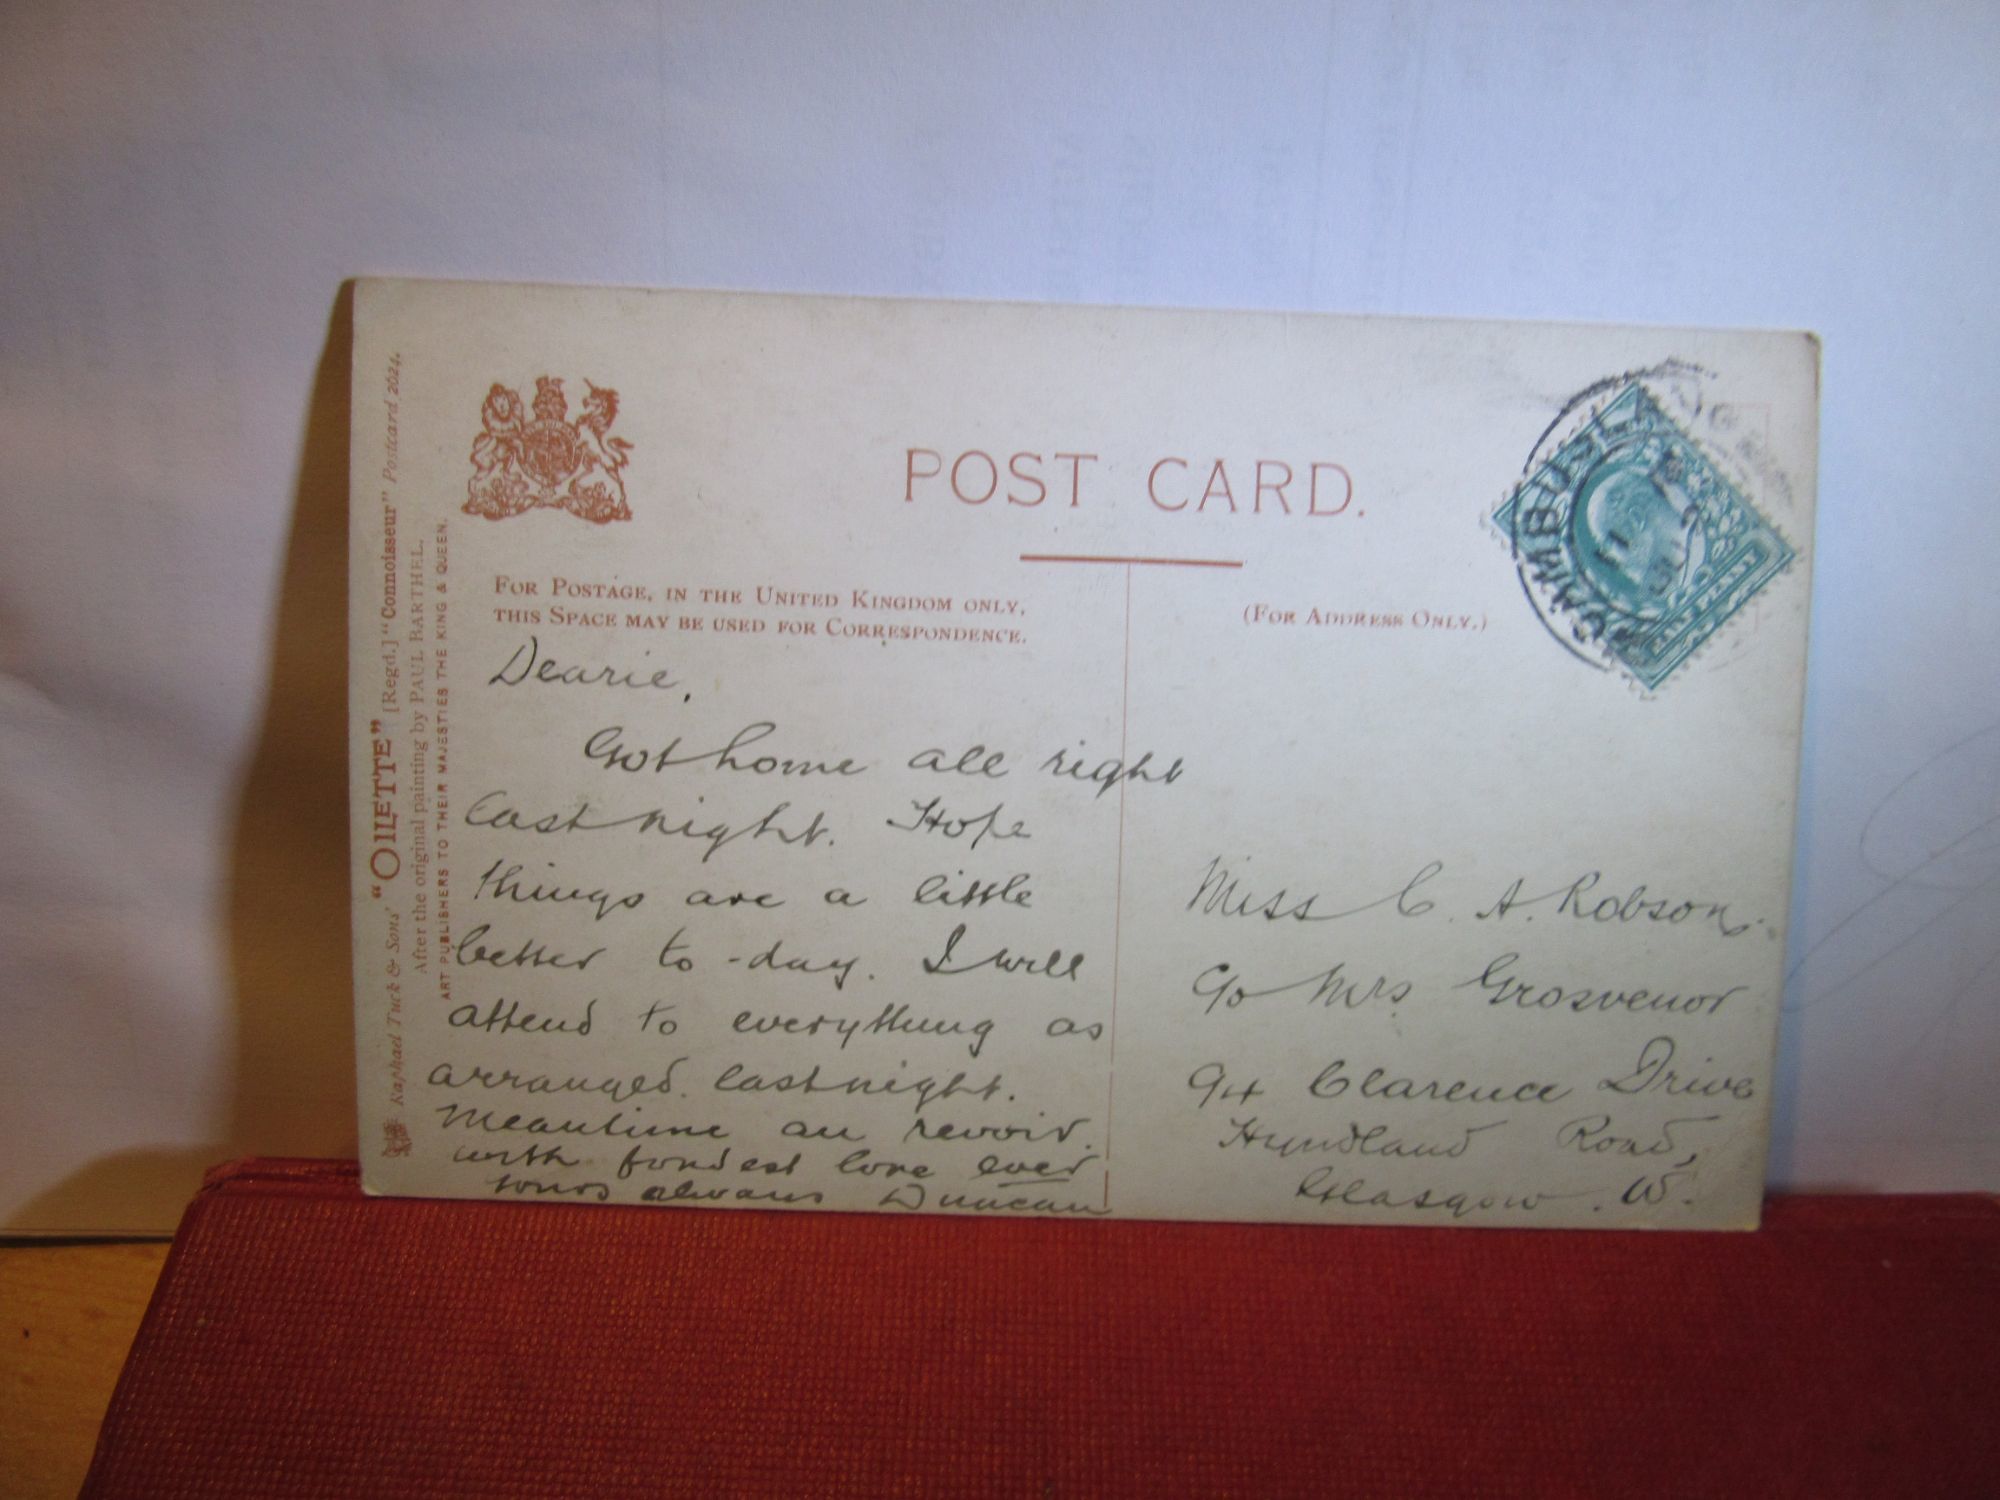 POST CARD.
FOR POSTAGE, IN THE UNITED KINGDOM ONLY,
THIS SPACE MAY BE USED FOR CORRESPONDENCE.
(FOR ADDRESS ONLY.)
Raphael Tuck & Sons' "OILETTE" [Regd.] "Connoisseur" Postcard 2024.
After the original painting by PAUL BARTHEL.
ART PUBLISHERS TO THEIR MAJESTIES THE KING & QUEEN.
Dearie,
Got home all right
last night. Hope
things are a little
better to-day. I will
attend to everything as
arranged last night.
Meantime au revoir.
with fondest love ever
yours always Duncan
Miss C. A. Robson
c/o Mrs Grosvenor
94 Clarence Drive
Hyndland Road,
Glasgow. W.
HALF PENNY